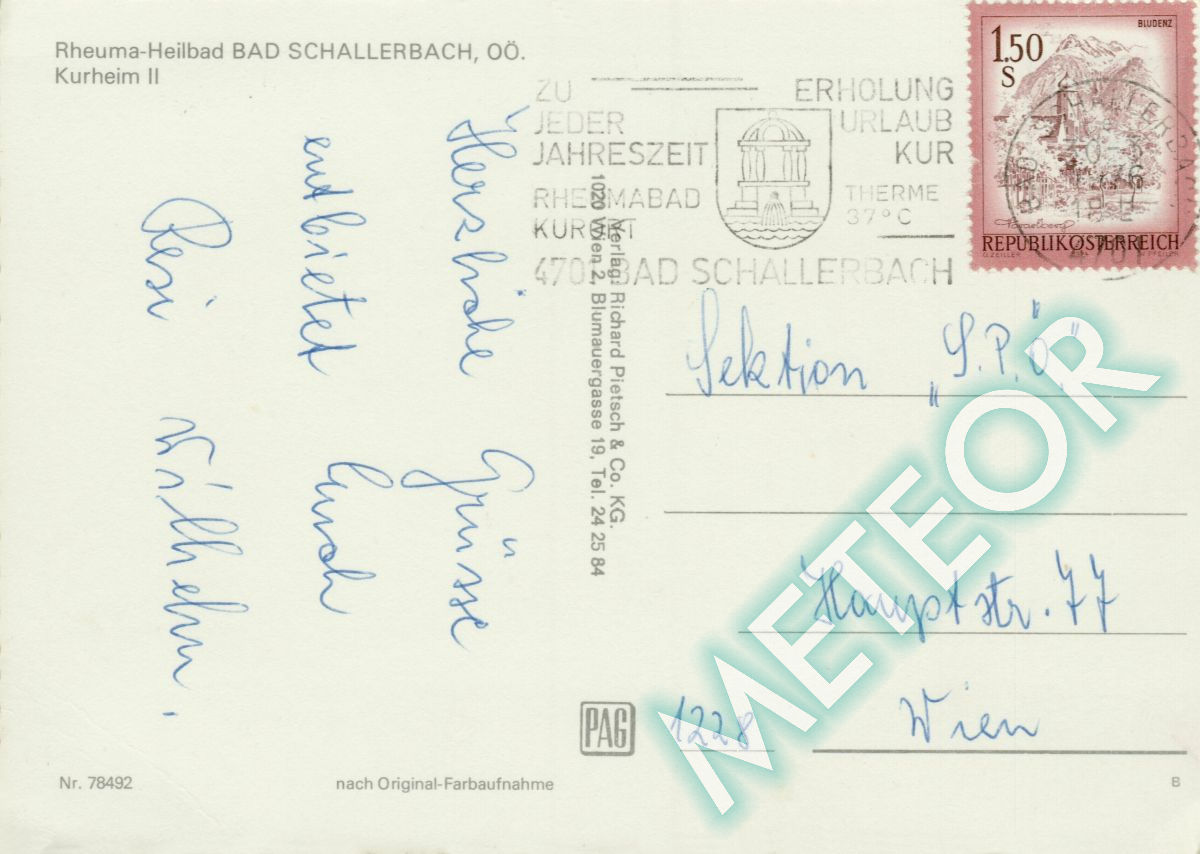 Rheuma-Heilbad BAD SCHALLERBACH, OÖ.
Kurheim II
ZU
JEDER
JAHRESZEIT
ERHOLUNG
URLAUB
KUR
RHEUMABAD
KURORT
THERME
37°C
BAD SCHALLERBACH
BLUDENZ
1.50
S
Vorarlberg
REPUBLIK ÖSTERREICH
Herzliche Grüsse
entbietet Euch
Resi Wilhelm.
Verlag: Richard Pietsch & Co. KG.
1020 Wien 2, Blumauergasse 19, Tel. 24 25 84
Sektion „S.P.Ö"
Hauptstr. 77
1228 Wien
PAG
METEOR
Nr. 78492
nach Original-Farbaufnahme
B